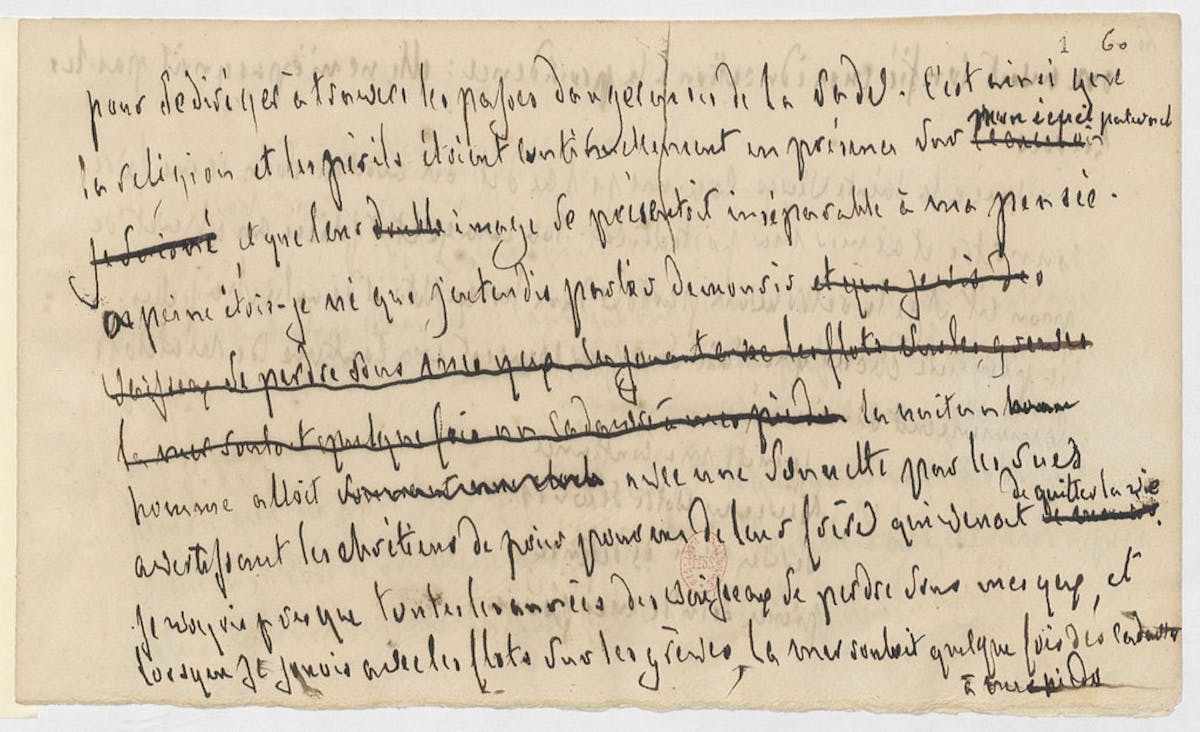 1 60
pour se diriger à travers les passes dangereuses de la rade. C'est ainsi que
la religion et les périls étoient continuellement en présence sur mon seuil paternel
je suis né et que leur double image se présentoit inséparable à ma pensée.
à peine étois-je né que j'entendis parler de mourir et que je vis des
vaisseaux se perdre sous mes yeux, en jouant avec les flots sur les grèves
la mer rouloit quelque fois un cadavre à mes pieds la nuit un homme
homme alloit avec une sonnette par les rues
avertissant les chrétiens de prier pour un de leur frère qui venoit de quitter la vie
je voyois presque toutes les années des vaisseaux se perdre sous mes yeux, et
lorsque je jouois avec les flots sur les grèves, la mer rouloit quelque fois des cadavres
à mes pieds